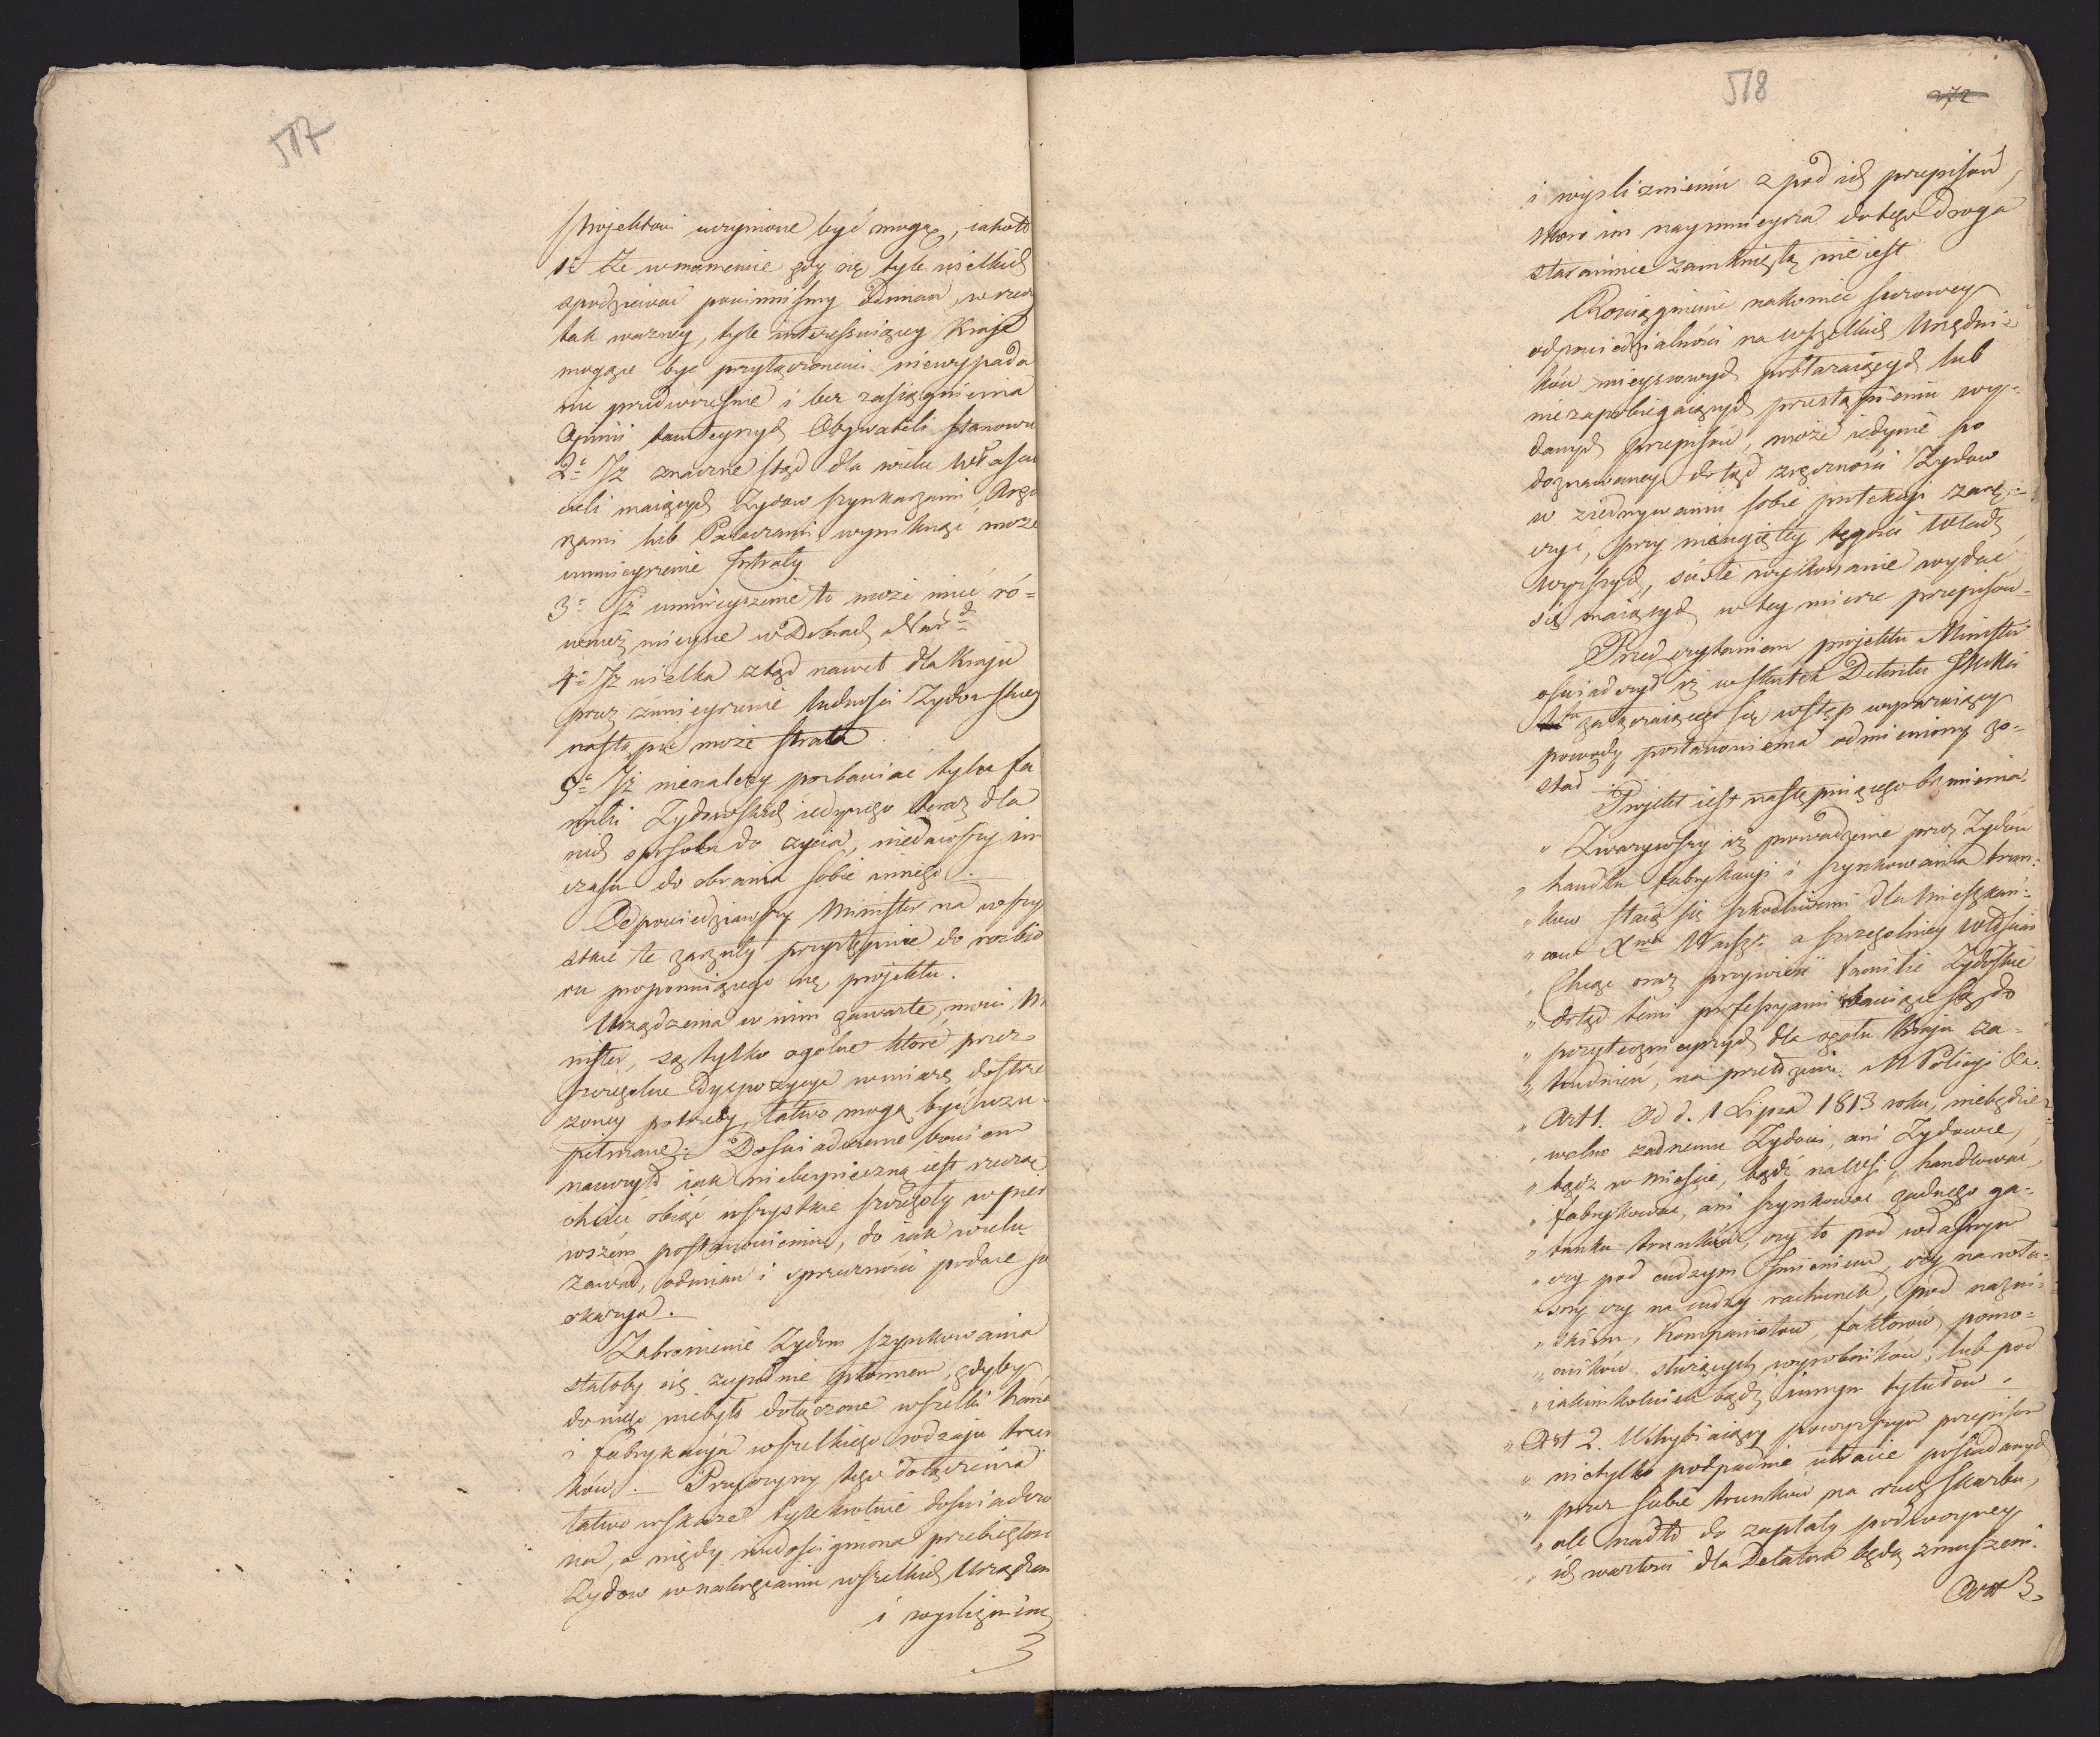 517
Projektowi uczynione być mogą, iakoto
1° Że w momencie gdy się tyle wielkich
spodziewać powinniśmy odmian, w rzeczy
tak ważney, tyle interessuiącey Kraje
mogące być przyłączonemi niewypada
nic przedwcześnie i bez zasiągnienia
Opinii tamteyszych Obywateli stanowić
2° Iż znaczne stąd dla wielu Właści
cieli maiących Zydow szynkarzami Aren
zami lub Pachciarzami wyniknąć może
umnieyszenie Intraty
3° Iż umnieyszenie to może mieć ró=
wnież mieysce w Dobrach Nar:
4° Iż wielka ztąd nawet dla Kraju
przez zmnieyszenie ludności Zydowskiey
nastąpić może strata.
5° Iż nienależy pozbawiać tylu fa
milii Zydowskich iedynego teraz dla
nich sposobu do życia, niedawszy im
czasu do obrania sobie innego.
Odpowiedziawszy Minister na wszy
stkie te zarzuty przystępuie do rozbio
ru proponuiącego się projektu.
Urządzenia w nim zawarte, mówi Mi
nister, są tylko ogólne które przez
szczególne Dyspozycye w miarę dostrze
żoney potrzeby, łatwo mogą być uzu=
pełniane. Doświadczenie bowiem
nauczyło iak niebezpieczną iest rzeczą
chcieć obiąć wszystkie szczegóły w pier
wszém postanowieniu, do iak wielu
zawad, odmian i sprzeczności podaie po
okazyą.
Zabronienie Zydom szynkowania
stałoby się zupełnie płonnem, gdyby
do niego niebyło dołączone wszelki handel
i fabrykacya wszelkiego rodzaju trun
ków. Przyczyny tego dołączenia
łatwo wskaże tylekrotnie doświadczo
na, a nigdy niedościgniona przebiegłość
Zydow w nadwerężaniu wszelkich Urządzen
i wyślizgnieniu
518
272
i wyslizgnieniu z pod ich przepisów,
skoro im naymnieysza do tego droga
starannie zamkniętą nie iest
Rozciągnienie nakoniec surowey
odpowiedzialności na wszelkich Urzędni=
ków mieyscowych pobłażaiących lub
niezapobiegaiących przestąpieniu wy=
danych przepisów, może iedynie po
doznawaney dotąd zręczności Zydow
w ziednywaniu sobie protekcyi zarę=
czyć, przy nieugiętey tęgości Władz
wyższych, ścisłe wykonanie wydać
się maiących w tey mierze przepisów.
Przed czytaniem projektu Minister
oświadczył iż w skutek Dekretu JKMci
załączaiącego się wstęp wyrażaiący
powody postanowienia odmieniony zo=
stał
Projekt iest następuiącego brzmienia.
„ Zważywszy iż prowadzenie przez Zydow
„ handlu fabrykacyi i szynkowania trun=
„ kow staią się szkodliwemi dla Mieszkań=
„ cow Xwa Warszo: a szczegolniey Włościan
„ Chcąc oraz przywieść familie Zydowskie
„ dotąd temi professyami bawiące się, do
„ pożytecznieyszych dla ogołu Kraju za=
„ trudnień, na przełożenie M Policyi &c.
„ Art 1. Od d. 1 Lipca 1813 roku, niebędzie
„ wolno żadnemu Zydowi, ani Zydowce,
„ bądź w mieście, bądź na wsi, handlować,
„ fabrykować, ani szynkować żadnego ga=
„ tunku trunków, czy to pod własnym
„ czy pod cudzym Imieniem, czy na wła=
„ sny czy na cudzy rachunek, pod nazwi=
„ skiem, Kompanistow, faktorów, pomo=
„ cników, służących wyrobników, lub pod
„ iakimkolwiek bądź innym tytułem.
„ Art 2. Uchybiaiący powyższym przepisom
„ nietylko podpadnie utracie posiadanych
„ przez siebie trunków na rzecz skarbu,
„ ale nadto do zapłaty podwoyney
„ ich wartości dla Delatora będą zmuszeni.
Art 3